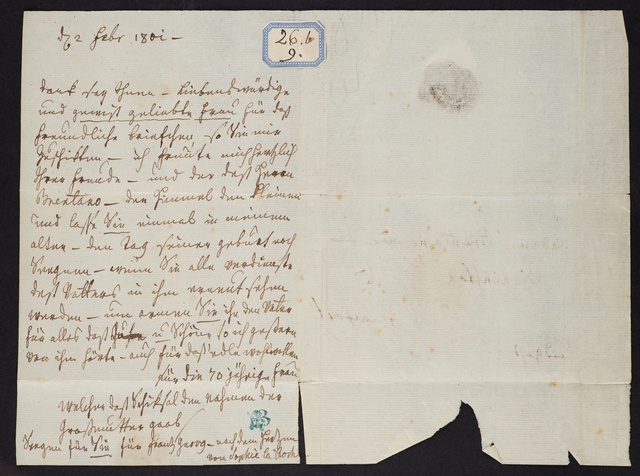 d 2 Febr 1801 –
26.b
9.
dank sey Ihnen – liebenswürdige
und gewiß geliebte Frau für daß
freundliche briefchen so Sie mir
schikten – ich freute mich herzlich
Ihrer Freude – und der deß Herrn
Brentano – der Himmel den Kleinen
und lasse Sie einmal in meinem
alter – den Tag seiner geburt noch
Seegnen – wenn Sie alle verdienste
deß Vatters in ihm erneut sehen
werden – umarmen Sie ihn den Vater
für alles daß gute u Schöne so ich gestern
von ihm hörte – auch für daß edle wohlwollen
für die 70 jährige Frau
welcher daß Schiksal den nahmen der
Großmutter gaab
Seegen für Sie für Franz Georg – nach dem Herzen
von Sophie la Roche